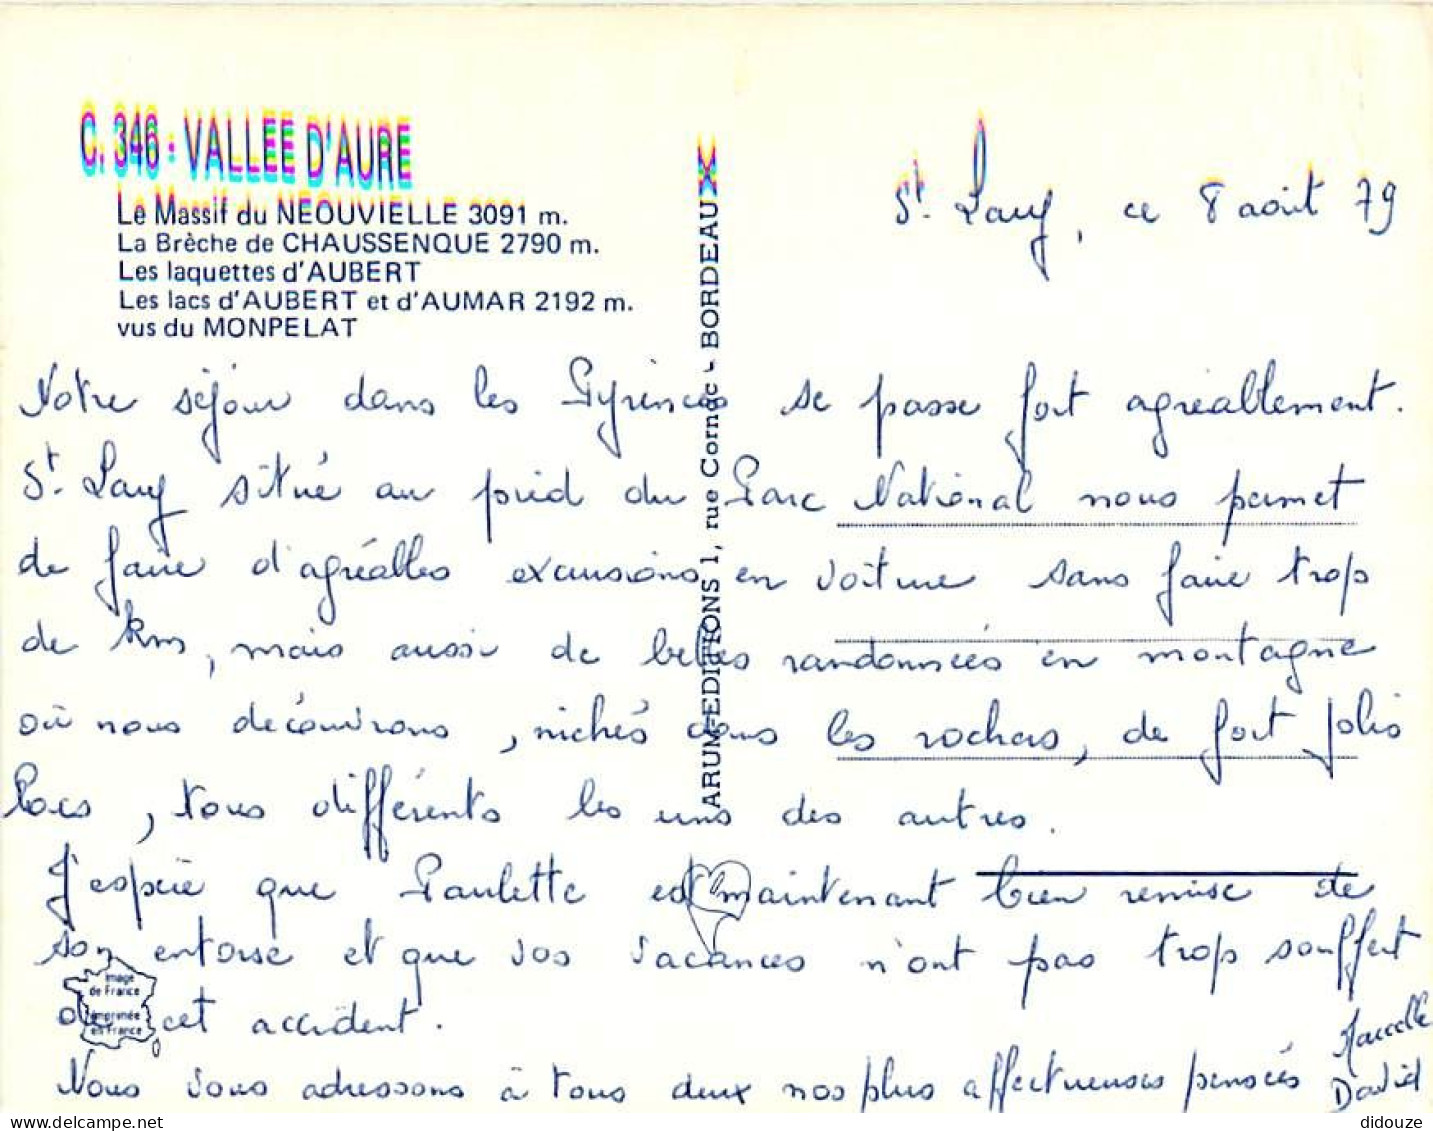 C. 346 - VALLEE D'AURE
Le Massif du NEOUVIELLE 3091 m.
La Brèche de CHAUSSENQUE 2790 m.
Les laquettes d'AUBERT
Les lacs d'AUBERT et d'AUMAR 2192 m.
vus du MONPELAT
ARUM-EDITIONS 1, rue Cornac - BORDEAUX
St. Lary, ce 8 août 79
Notre séjour dans les Pyrénées se passe fort agréablement.
St. Lary situé au pied du Parc National nous permet
de faire d'agréables excursions en voiture sans faire trop
de km, mais aussi de belles randonnées en montagne
où nous découvrons, nichés dans les rochers, de fort jolis
lacs, tous différents les uns des autres.
J'espère que Paulette est maintenant bien remise de
son entorse et que vos vacances n'ont pas trop souffert
de cet accident.
Nous vous adressons à tous deux nos plus affectueuses pensées
Marcelle
David
Image
de France
imprimée
en France
didouze